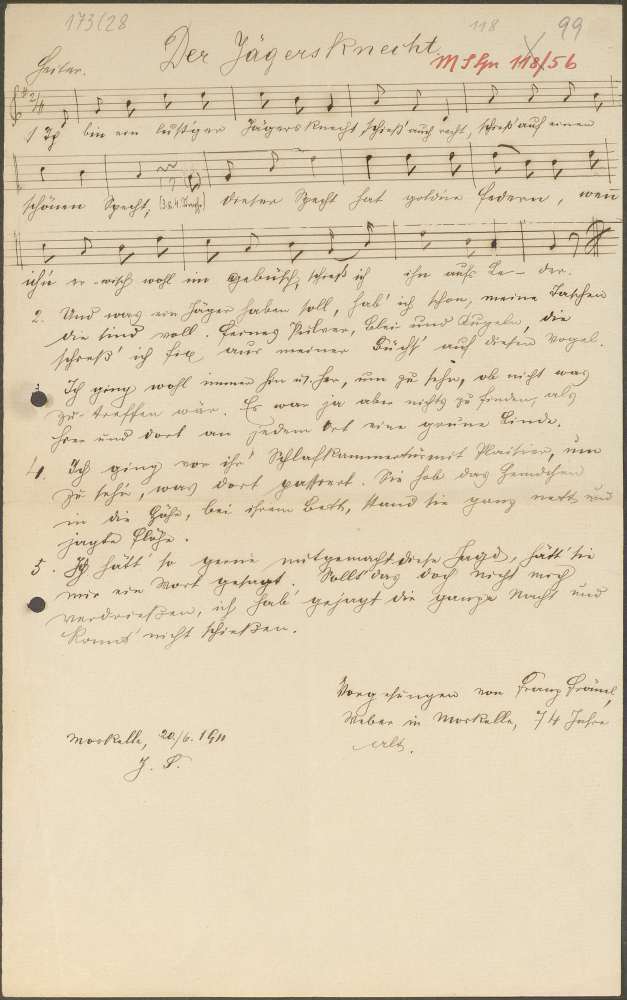 173/28
118
99
Der Jägersknecht.
Heiter.
118/56
1 Ich bin ein lustiger Jägersknecht, schieß' auch recht, schieß' auf einen
schönen Specht; (3 & 4 Stroph.) dieser Specht hat goldne Federn, wenn
ich'n er-wisch wohl im Gebüsch, schieß ich ihn aufs Le-der.
2. Und was ein Jäger haben soll, hab' ich schon, meine Taschen
die sind voll. Feines Pulver, Blei und Kugeln, die
schieß' ich fix aus meiner Büchs' auf diesen Vogel.
Ich ging wohl immer hin u. her, um zu sehn, ob nicht was
zu-treffen wär. Es war ja aber nichts zu finden, als
hier und dort an jedem Ort eine grüne Linde.
4. Ich ging vor ihr' Schlafkammertür mit Plaisier, um
zu seh'n, was dort passiert. Sie hob das Hemdchen
in die Höhe, bei ihrem Bett, stand sie ganz nett und
jagte Flöhe.
5. Ich hätt' so gerne mitgemacht diese Jagd, hätt' sie
mir ein Wort gesagt. Sollt' das doch nicht
verdrießen, ich hab' gejagt die ganze Nacht und
konnt' nicht schießen.
Vorgesungen von Franz
Weber in Morkelle, 74 Jahre
alt.
Morkelle, 20/6. 1911
J. P.